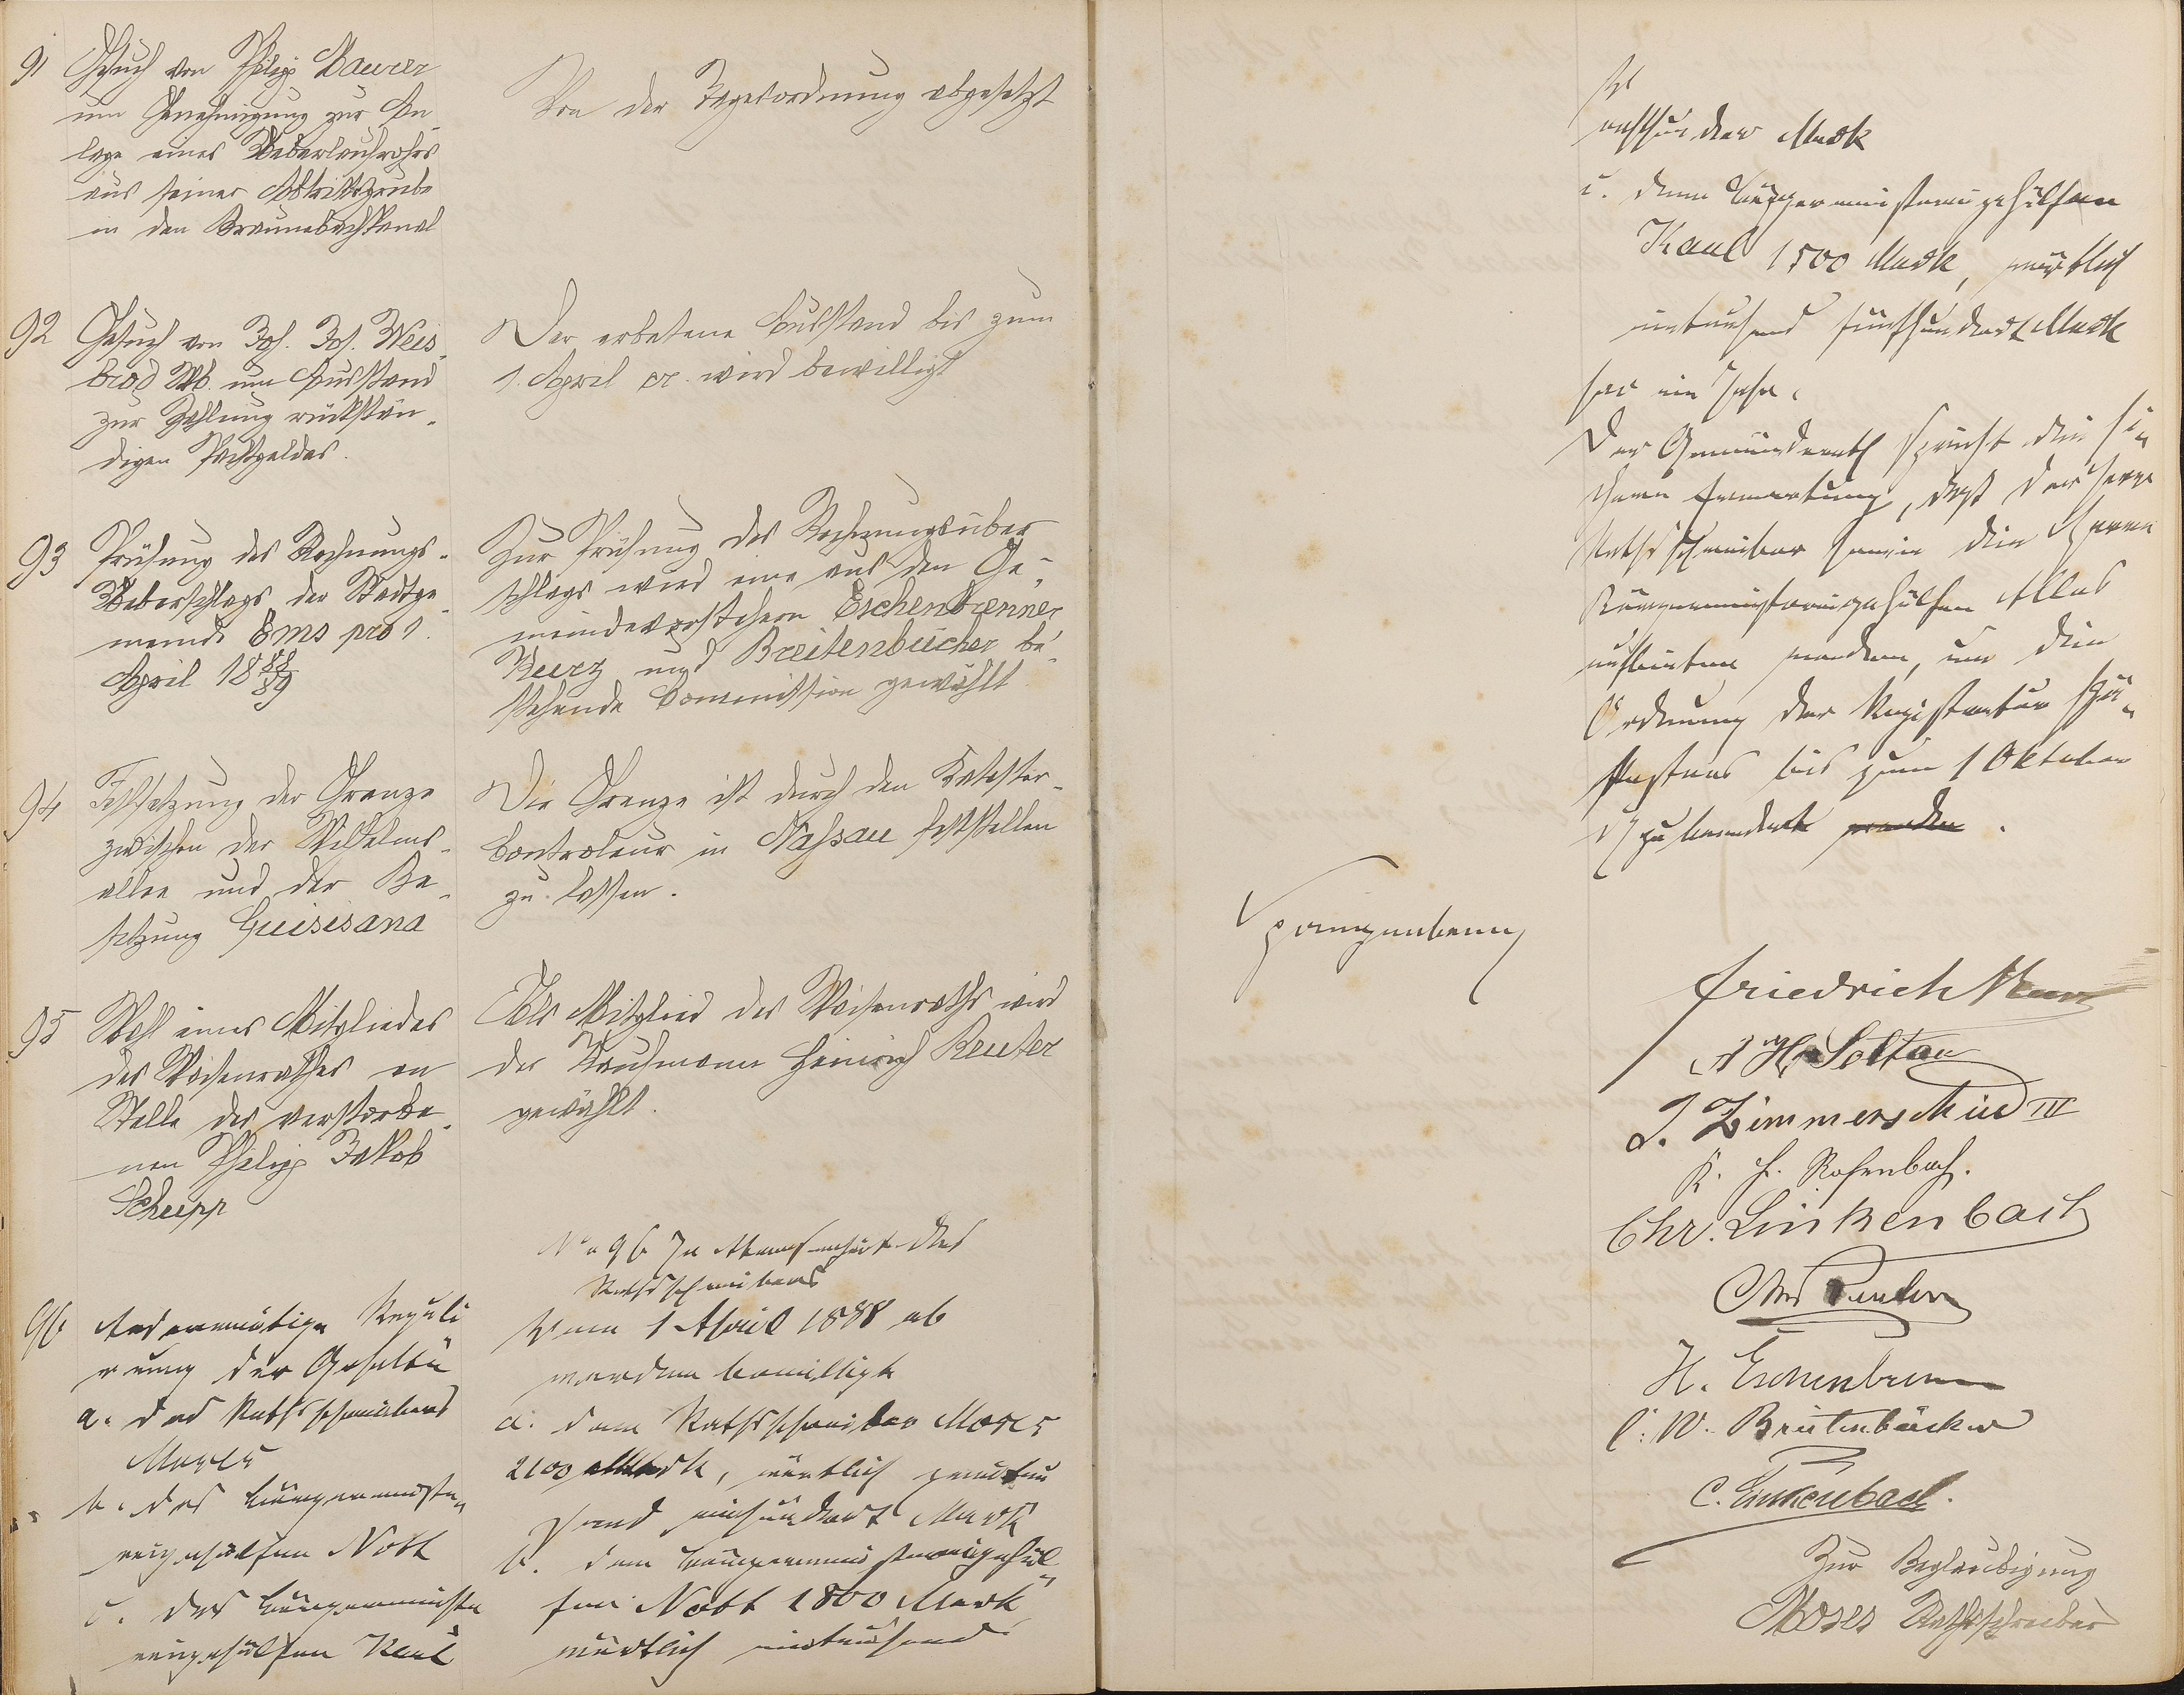 91 Gesuch von Philipp Maurer
um Genehmigung zur An-
lage eines Ueberlaufrohrs
aus seiner Abtrittsgrube
in den Braunebachkanal
Von der Tagesordnung abgesetzt
92 Gesuch von Joh. Jos. Weis-
brod Wb. um Ausstand
zur Zahlung rückstän-
digen Pachtgeldes.
Der erbetene Ausstand bis zum
1. April cr. wird bewilligt
93 Prüfung des Rechnungs-
Ueberschlags der Stadtge-
meinde Ems pro 1.
April 1888/89
Zur Prüfung des Rechnungsüber
schlags wird eine aus den Ge-
meindevorstehern Eschenbrenner
Kurz und Breitenbücher be-
stehende Commission gewählt
94 Festsetzung der Grenze
zwischen der Wilhelms-
allee und der Be-
sitzung Guisisana
Die Grenze ist durch den Kataster-
Controleur in Nassau feststellen
zu lassen.
95 Wahl eines Mitgliedes
des Waisenrathes an
Stelle des verstorbe-
nen Philipp Jakob
Schupp
Als Mitglied des Waisenraths wird
der Kaufmann Heinrich Reuter
gewählt.
96 Anderweitige Reguli
rung der Gehälter
a. des Rathsschreibers
Moses
b. des Bürgermeiste-
reigehülfen Nott
c. des Bürgermeiste
reigehülfen Kaul
No 96 In Abwesenheit des
Rathsschreibers
Vom 1 April 1888 ab
werden bewilligt
a. dem Rathsschreiber Moses
2100 Mark, wörtlich zweitau
send einhundert Mark
b. dem Bürgermeistereigehül-
fen Nott 1800 Mark
wörtlich eintausend
achthundert Mark
c. dem Bürgermeistereigehülfen
Kaul 1500 Mark, wörtlich
eintausend fünfhundert Mark
per ein Jahr.
Der Gemeinderath spricht die si-
chere Erwartung, daß der Herr
Rathsschreiber sowie die Herren
Bürgermeistereigehülfen Alles
aufbieten werden, um die
Ordnung der Registratur spä-
testens bis zum 1 Oktober
zu beendet werden.
Spangenberg
Friedrich Kurz
A H Soltau
J. Zimmerschied IV
K. H. Rosenbach.
Chr. Linkenbach
H. Eschenbrenner
C. W. Breitenbücher
C. Linkenbach.
Zur Beglaubigung
Moses Rathsschreiber